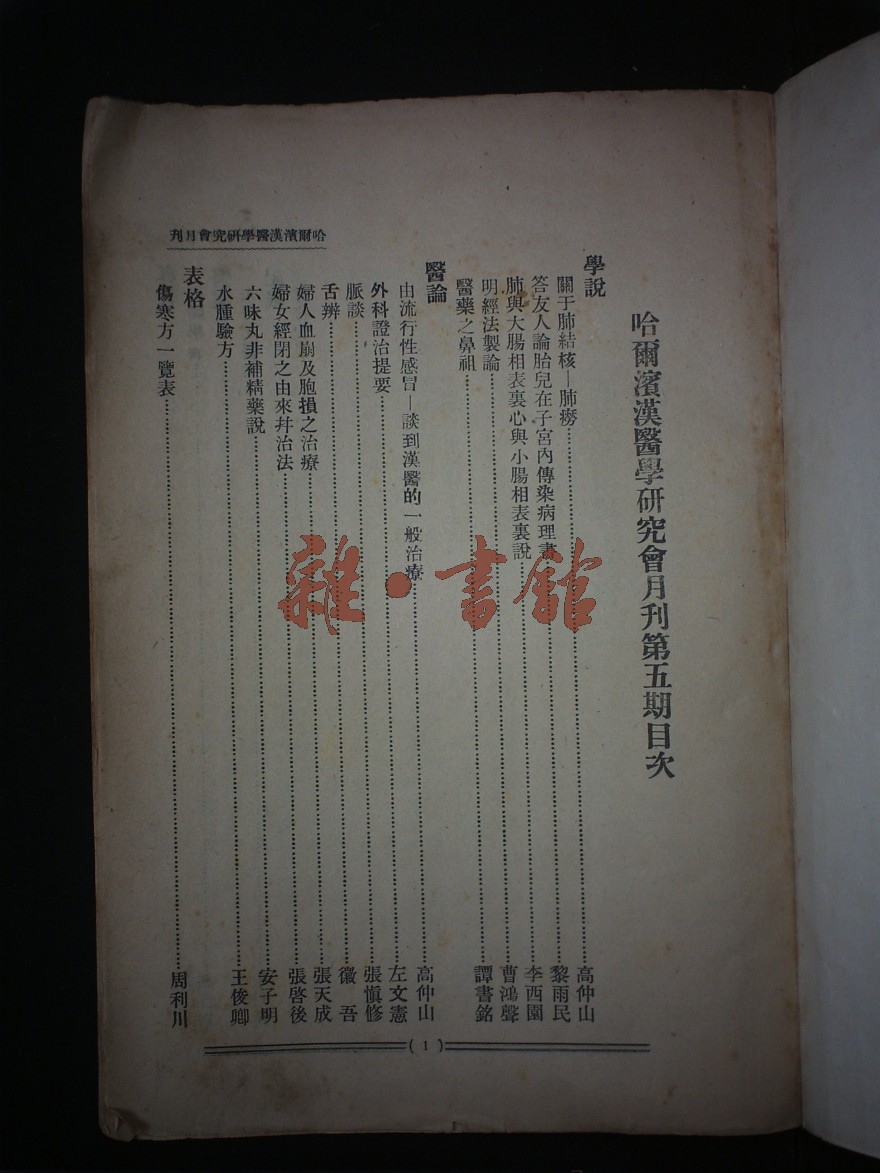 哈爾濱漢醫學研究會月刊第五期目次
學說
關于肺結核—肺癆……高仲山
答友人論胎兒在子宮內傳染病理書……黎雨民
肺與大腸相表裏心與小腸相表裏說……李西園
明經法製論……曹鴻聲
醫藥之鼻祖……譚書銘
醫論
由流行性感冒—談到漢醫的一般治療……高仲山
外科證治提要……左文憲
脈談……張慎修
舌辨……徽吾
婦人血崩及胞損之治療……張天成
婦女經閉之由來幷治法……張啓後
六味丸非補精藥說……安子明
水腫驗方……王俊卿
表格
傷寒方一覽表……周利川
哈爾濱漢醫學研究會月刊
(1)
雜·書館